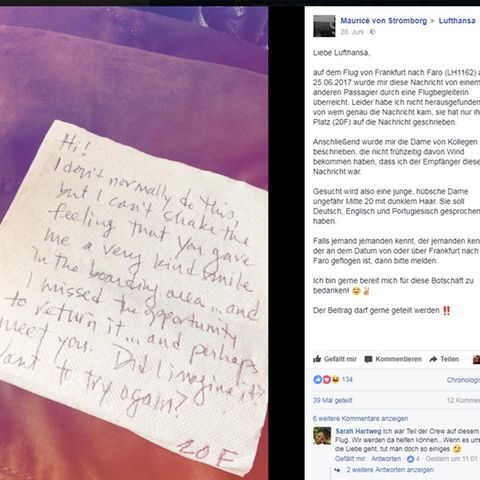 Hi!
I don't normally do this,
but I can't shake the
feeling that you gave
me a very kind smile
in the boarding area ... and
I missed the opportunity
to return it ... and perhaps
meet you. Did I imagine it?
Want to try again?
20F
Mauricé von Stromborg ▸ Lufthansa
28. Juni ·
Liebe Lufthansa,
auf dem Flug von Frankfurt nach Faro (LH1162) a
25.06.2017 wurde mir diese Nachricht von einem
anderen Passagier durch eine Flugbegleiterin
überreicht. Leider habe ich nicht herausgefunden
von wem genau die Nachricht kam, sie hat nur ihr
Platz (20F) auf die Nachricht geschrieben.
Anschließend wurde mir die Dame von Kollegen
beschrieben, die nicht frühzeitig davon Wind
bekommen haben, dass ich der Empfänger diese
Nachricht war.
Gesucht wird also eine junge, hübsche Dame
ungefähr Mitte 20 mit dunklem Haar. Sie soll
Deutsch, Englisch und Portugiesisch gesprochen
haben.
Falls jemand jemanden kennt, der jemanden ken
der an dem Datum von oder über Frankfurt nach
Faro geflogen ist, dann bitte melden.
Ich bin gerne bereit mich für diese Botschaft zu
bedanken! 😄✌
Der Beitrag darf gerne geteilt werden ‼
Gefällt mir Kommentieren Teilen
134 Chronologis
39 Mal geteilt 12 Kommen
6 weitere Kommentare anzeigen
Sarah Hartweg Ich war Teil der Crew auf diesem
Flug. Wir werden da helfen können... Wenn es um
die Liebe geht, tut man doch so einiges 😉
Gefällt mir · Antworten · 4 · Gestern um 11:01
2 weitere Antworten anzeigen